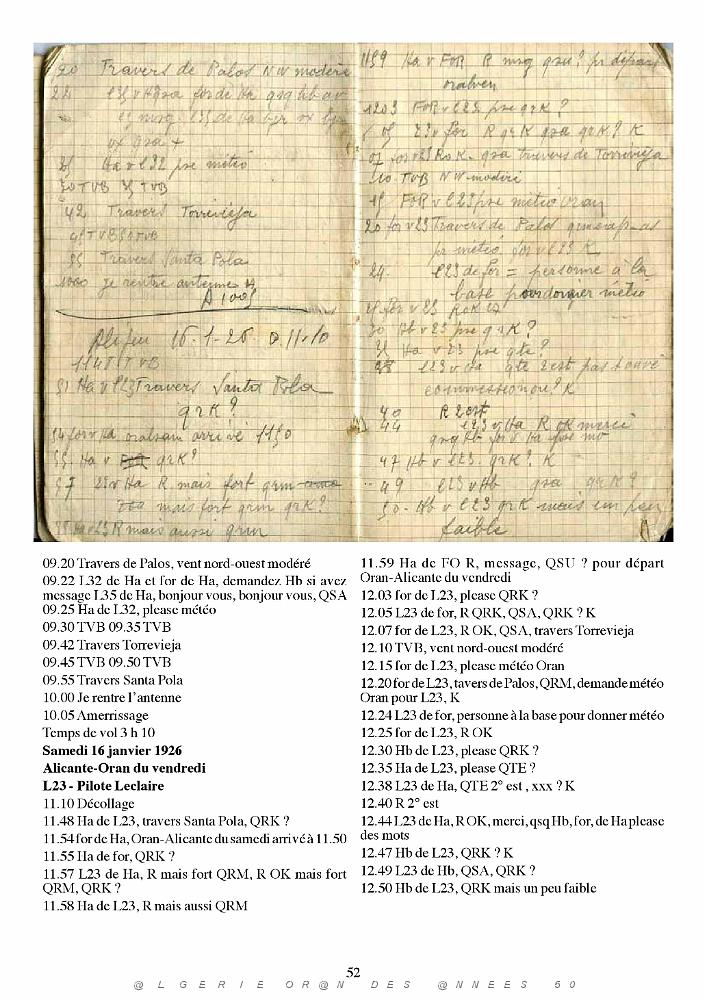 20 Travers de Palos NW modéré
22
Ha v l32 pse météo
30 TVB 35 TVB
42 Travers Torrevieja
45 TVB 50 TVB
55 Travers Santa Pola
1000 je rentre antenne
A 1005
16-1-26 D. 11.10
1148 TVB
51 Ha v l23 Travers Santa Pola
qrk?
54 for v Ha oralsam arrivé 1150
55. Ha v qrk?
57 23 v Ha R mais fort qrm
mais fort qrm qrk?
58 Ha v l23 R mais aussi qrm
1159 Ha v FoR R msg qsu? pr départ
oralven
1203 FoR v l23 pse qrk?
05 l23 v for R qrk qsa qrk? K
07 for v l23 R ok. qsa travers de Torrevieja
10. TVB NW modéré
15 FoR v l23 pse météo oran
20 for v 23 Travers de Palos
pr météo for v l23 K
24. l23 de for = personne à la
base pour donner météo
25 for v 23 R ok
30 Hb v 23 pse qrk?
35 Ha v 23 pse qte?
38 l23 v Ha qte 2 est pas trouvé
K
40 R 2 est
44 l23 v Ha R ok merci
qsq Hb for v Ha pse mo
47 Hb v l23. qrk? K
49 l23 v Hb qsa qrk?
50. Hb v l23 qrk mais un peu
faible
09.20 Travers de Palos, vent nord-ouest modéré
09.22 L32 de Ha et for de Ha, demandez Hb si avez
message L35 de Ha, bonjour vous, bonjour vous, QSA
09.25 Ha de L32, please météo
09.30 TVB 09.35 TVB
09.42 Travers Torrevieja
09.45 TVB 09.50 TVB
09.55 Travers Santa Pola
10.00 Je rentre l'antenne
10.05 Amerrissage
Temps de vol 3 h 10
Samedi 16 janvier 1926
Alicante-Oran du vendredi
L23 - Pilote Leclaire
11.10 Décollage
11.48 Ha de L23, travers Santa Pola, QRK ?
11.54 for de Ha, Oran-Alicante du samedi arrivé à 11.50
11.55 Ha de for, QRK ?
11.57 L23 de Ha, R mais fort QRM, R OK mais fort
QRM, QRK ?
11.58 Ha de L23, R mais aussi QRM
11.59 Ha de FO R, message, QSU ? pour départ
Oran-Alicante du vendredi
12.03 for de L23, please QRK ?
12.05 L23 de for, R QRK, QSA, QRK ? K
12.07 for de L23, R OK, QSA, travers Torrevieja
12.10 TVB, vent nord-ouest modéré
12.15 for de L23, please météo Oran
12.20 for de L23, tavers de Palos, QRM, demande météo
Oran pour L23, K
12.24 L23 de for, personne à la base pour donner météo
12.25 for de L23, R OK
12.30 Hb de L23, please QRK ?
12.35 Ha de L23, please QTE ?
12.38 L23 de Ha, QTE 2° est , xxx ? K
12.40 R 2° est
12.44 L23 de Ha, R OK, merci, qsq Hb, for, de Ha please
des mots
12.47 Hb de L23, QRK ? K
12.49 L23 de Hb, QSA, QRK ?
12.50 Hb de L23, QRK mais un peu faible
52
@ L G E R I E O R @ N D E S @ N N E E S 5 0